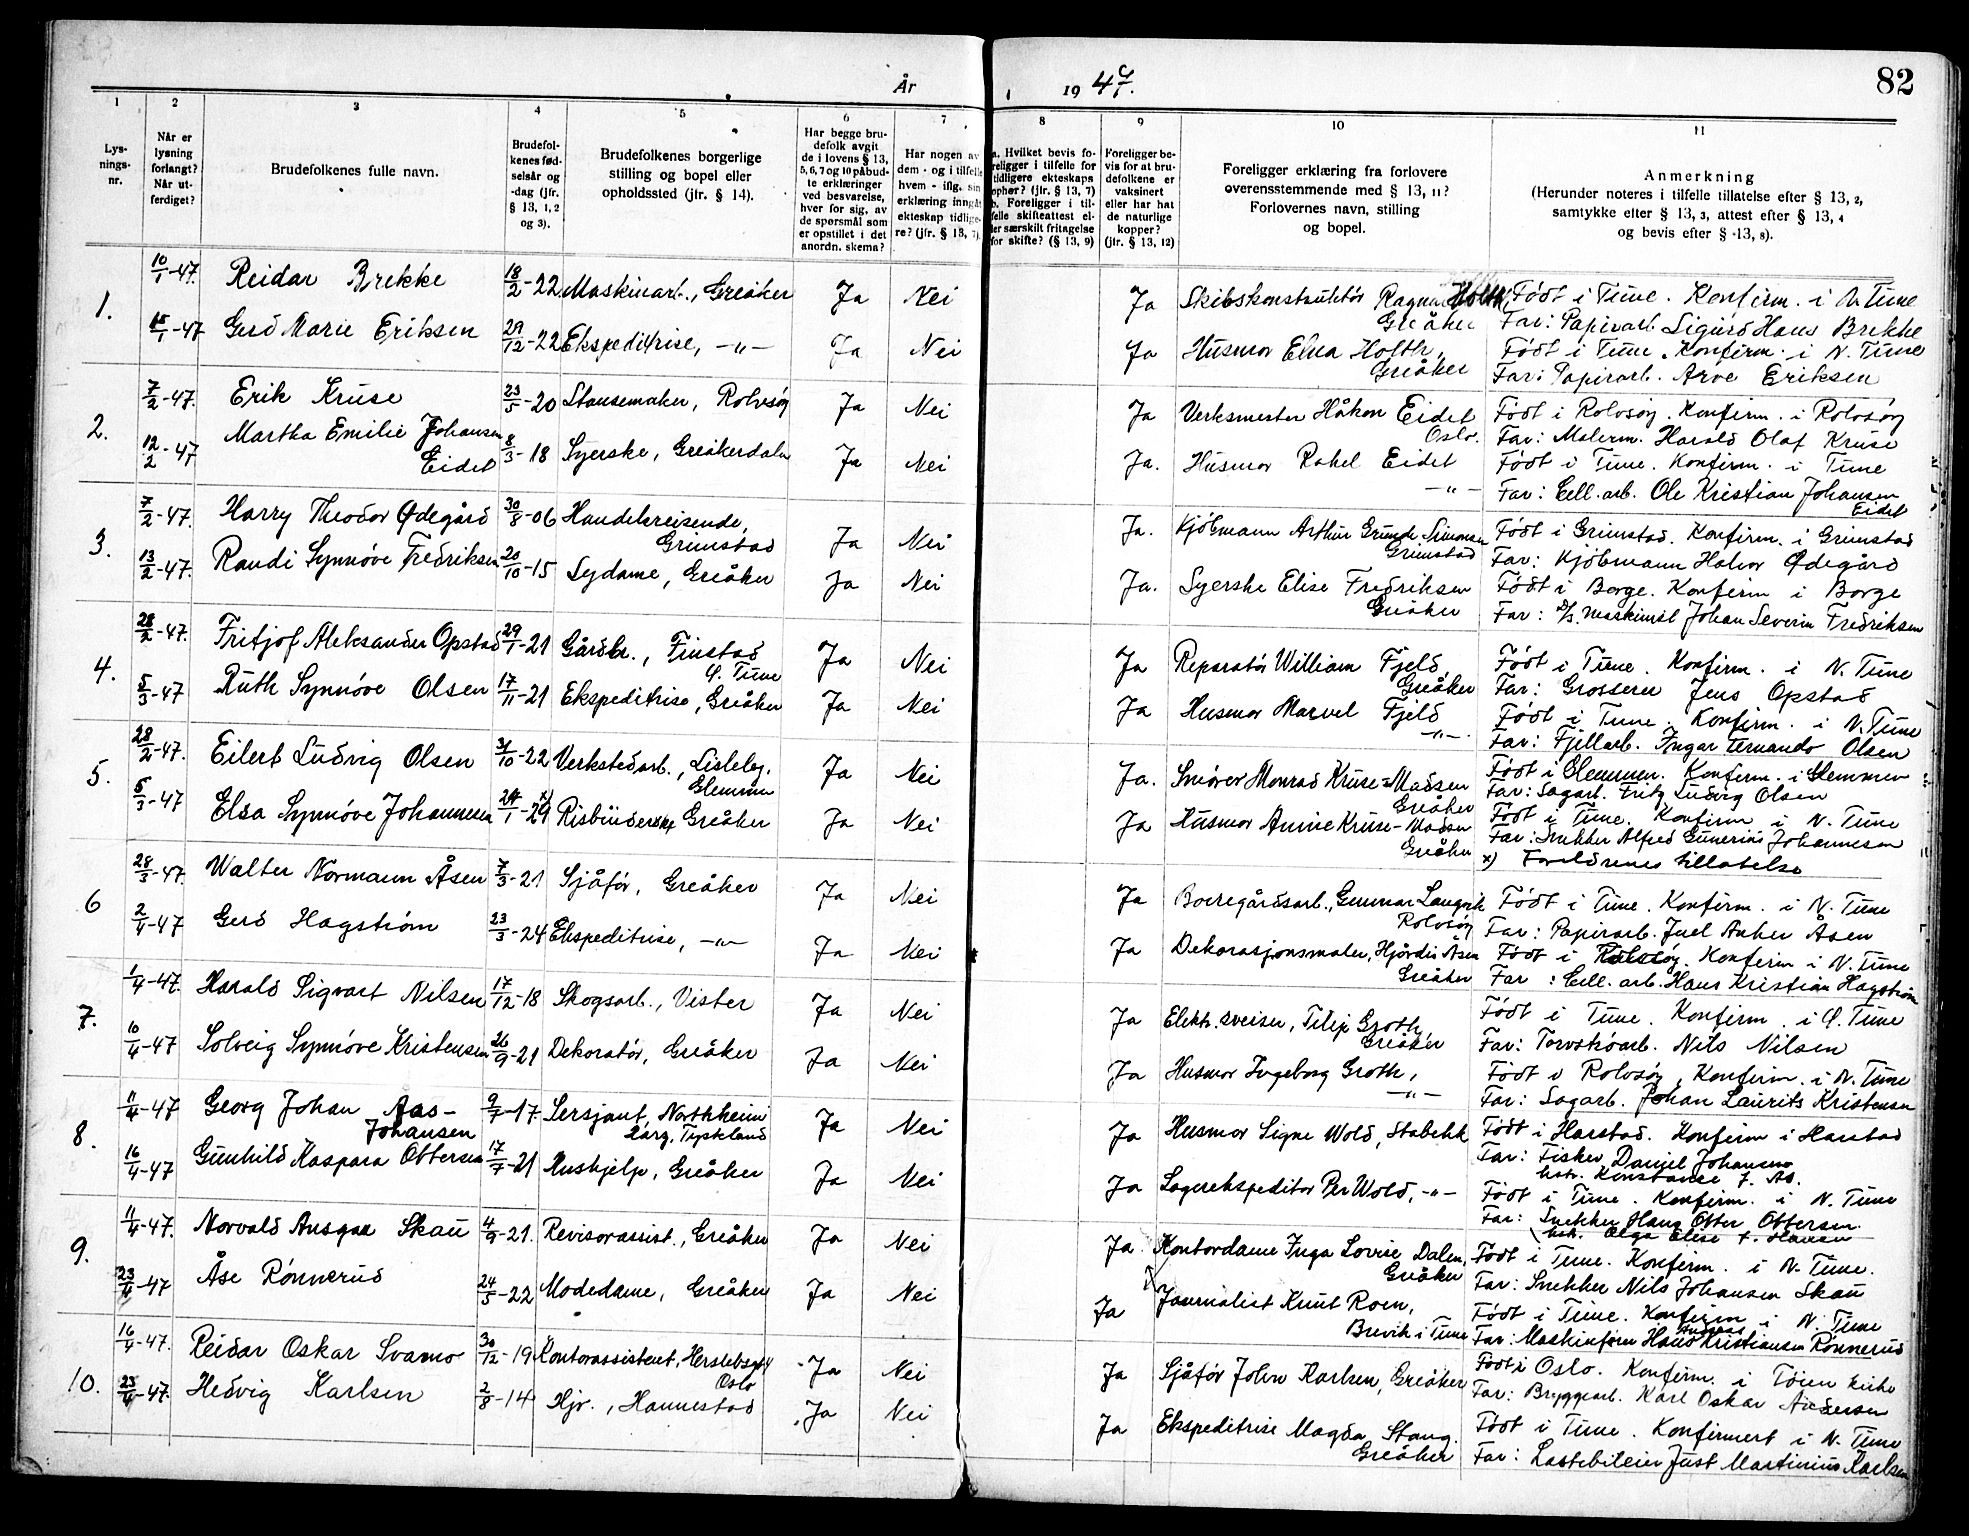 År 1947.
82
1 2 3 4 5 6 7 8 9 10 11
Lysningsnr.
Når er lysning forlangt? Når utferdiget?
Brudefolkenes fulle navn.
Brudefolkenes fødselsår og -dag (jfr. § 13, 1, 2 og 3).
Brudefolkenes borgerlige stilling og bopel eller opholdssted (jfr. § 14).
Har begge brudefolk avgit de i lovens § 13, 5, 6, 7 og 10 påbudte erklæringer ved besvarelse, hver for sig, av de spørsmål som er opstillet i det anordn. skema?
Har nogen av dem - og i tilfelle hvem - iflg. sin erklæring inngåt ekteskap tidligere? (jfr. § 13, 7)
a. Hvilket bevis foreligger i tilfelle for tidligere ekteskaps ophør? (jfr. § 13, 7)
b. Foreligger i tilfelle skifteattest eller særskilt fritagelse for skifte? (§ 13, 9)
Foreligger bevis for at brudefolkene er vaksinert eller har hat de naturlige kopper? (jfr. § 13, 12)
Foreligger erklæring fra forlovere overensstemmende med § 13, 11? Forlovernes navn, stilling og bopel.
Anmerkning
(Herunder noteres i tilfelle tillatelse efter § 13, 2, samtykke efter § 13, 3, attest efter § 13, 4 og bevis efter § 13, 8).
1.
10/1-47. Reidar Brekke 18/2-22 Maskinarb., Greåker Ja Nei Ja Skibskonstruktör Ragnar Holth, Greåker Födt i Tune. Konfirm. i N. Tune
Far: Papirarb. Sigurd Hans Brekke
15/1-47 Gerd Marie Eriksen 29/12-22 Ekspeditrise, -"- Ja Nei Ja Husmor Elna Holth, Greåker Födt i Tune. Konfirm. i N. Tune
Far: Papirarb. Arve Eriksen
2.
7/2-47. Erik Kruse 23/5-20 Stansemaker, Rolvsöy Ja Nei Ja Verksmester Håkon Eidet Oslo. Födt i Rolvsöy. Konfirm. i Rolvsöy
Far: Malerm. Harald Olaf Kruse
12/2-47 Martha Emilie Johansen Eidet 8/3-18 Syerske, Greåkerdalen Ja Nei Ja. Husmor Rakel Eidet -"- Födt i Tune. Konfirm. i Tune
Far: Cell. arb. Ole Kristian Johansen Eidet
3.
7/2-47. Harry Theodor Ødegård 30/8-06 Handelsreisende, Grimstad Ja Nei Ja. Kjöbmann Arthur Grunde Simonsen Grimstad Födt i Grimstad. Konfirm. i Grimstad
Far: Kjöbmann Halvor Ødegård
13/2-47. Randi Synnöve Fredriksen 20/10-15 Sydame, Greåker Ja Nei Ja. Syerske Elise Fredriksen Greåker Födt i Borge. Konfirm i Borge
Far: D/S. Maskinist Johan Severin Fredriksen
4.
28/2-47. Fritjof Aleksander Opstad 29/1-21 Gårdbr., Finstad Ø. Tune Ja Nei Ja Reparatör William Fjeld, Greåker Födt i Tune. Konfirm. i N. Tune
Far: Grosserer Jens Opstad
5/3-47 Ruth Synnöve Olsen 17/11-21 Ekspeditrise, Greåker Ja Nei Ja Husmor Marvel Fjeld -"-. Födt i Tune. Konfirm. i N. Tune
Far: Fjellarb. Ingar Fernando Olsen
5.
28/2-47. Eilert Ludvig Olsen 31/10-22 Verkstedarb., Lisleby, Glemmen Ja Nei Ja. Smörer Monrad Kruse-Madsen Greåker Födt i Glemmen. Konfirm. i Glemmen
Far: Sagarb. Fritz Ludvig Olsen
5/3-47 Elsa Synnöve Johannesen 24/1-29 x) Risbinderske Greåker Ja Nei Ja Husmor Annie Kruse-Madsen Greåker Födt i Tune. Konfirm i N. Tune
Far: Snekker Alfred Gunerius Johannesen
x) Foreldrenes tillatelse
6
28/3-47. Walter Normann Åsen 7/3-21 Sjåför, Greåker Ja Nei Ja Boregårdsarb., Gunnar Langvik Rolvsöy Födt i Tune. Konfirm. i N. Tune
Far: Papirarb. Juel Anker Åsen
2/4-47 Gerd Hagström 23/3-24 Ekspeditrise, -"- Ja Nei Ja Dekorasjonsmaler, Hjördis Åsen Greåker Födt i Rolvsöy. Konfirm i N. Tune
Far: Cell. arb. Hans Kristian Hagström
7.
1/4-47. Harald Sigvart Nilsen 17/12-18 Skogsarb., Vister Ja Nei Ja Elektr. sveiser, Filip Groth, Greåker Födt i Tune. Konfirm. i Ø. Tune
Far: Torvstöarb. Nils Nilsen
10/4-47 Solveig Synnöve Kristensen 26/9-21 Dekoratör, Greåker Ja Nei Ja Husmor Ingeborg Groth, -"- Födt i Rolvsöy, Konfirm. i N. Tune
Far: Sagarb. Johan Laurits Kristensen
8.
11/4-47 Georg Johan Aas-Johansen 9/7-17. Sersjant, Northheim Harz, Tyskland Ja Nei Ja Husmor Signe Wold, Stabekk Födt i Harstad. Konfirm i Harstad
Far: Fisker Daniel Johansen
hstr. Konstanse f. As.
16/4-47 Gunhild Kaspara Ottersen 17/7-21 Hushjelp, Greåker Ja Nei Ja Lagerekspeditör Per Wold, -"- Födt i Tune. Konfirm. i N. Tune
Far: Snekker Hans Otter Ottersen
hstr. Olga Elise f. Hansen
9.
11/4-47. Norvald Ansgar Skau 4/9-21. Revisorassist., Greåker Ja Nei Ja Kontordame Inga Lovise Dalen, Greåker Födt i Tune. Konfirm. i N. Tune.
Far: Snekker Nils Johansen Skau
23/4-47 Åse Rönnerud 24/5-22 Modedame, Greåker Ja Nei Ja Journalist Knut Roen, Brevik i Tune Födt i Tune. Konfirm i N. Tune
Far: Maskinform Hans Andreas Kristiansen Rönnerud
10.
16/4-47. Reidar Oskar Svamo 30/12-19 Kontorassistent, Herslebsgt. 4 Oslo Ja Nei Ja Sjåför John Karlsen, Greåker Födt i Oslo. Konfirm. i Töien kirke
Far: Bryggearb. Karl Oskar Andersen
23/4-47. Hedvig Karlsen 2/8-14 Hjv., Hannestad Ja Nei Ja Ekspeditrise Magda Stang. Greåker Födt i Tune. Konfirmert i N. Tune
Far: Lastebileier Just Martinius Karlsen